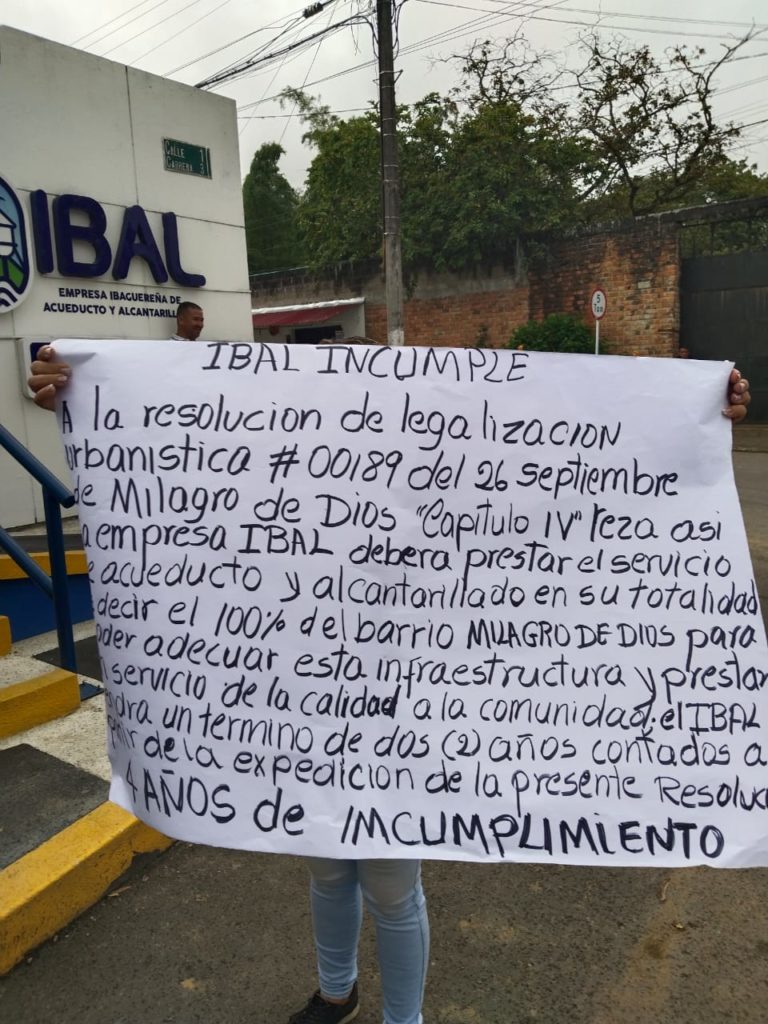 CALLE 1
CARRERA 3
IBAL
EMPRESA IBAGUEREÑA DE
ACUEDUCTO Y ALCANTARILL
5
Ton
IBAL INCUMPLE
A la resolucion de legalizacion
urbanistica #00189 del 26 septiembre
de Milagro de Dios "Capitulo IV" reza asi
a empresa IBAL debera prestar el servicio
e acueducto y alcantarillado en su totalidad
s decir el 100% del barrio MILAGRO DE DIOS para
oder adecuar esta infraestructura y prestar
n servicio de la calidad a la comunidad; el IBAL
ndra un termino de dos (2) años contados a
partir de la expedicion de la presente Resoluci
4 AÑOS de IMCUMPLIMIENTO